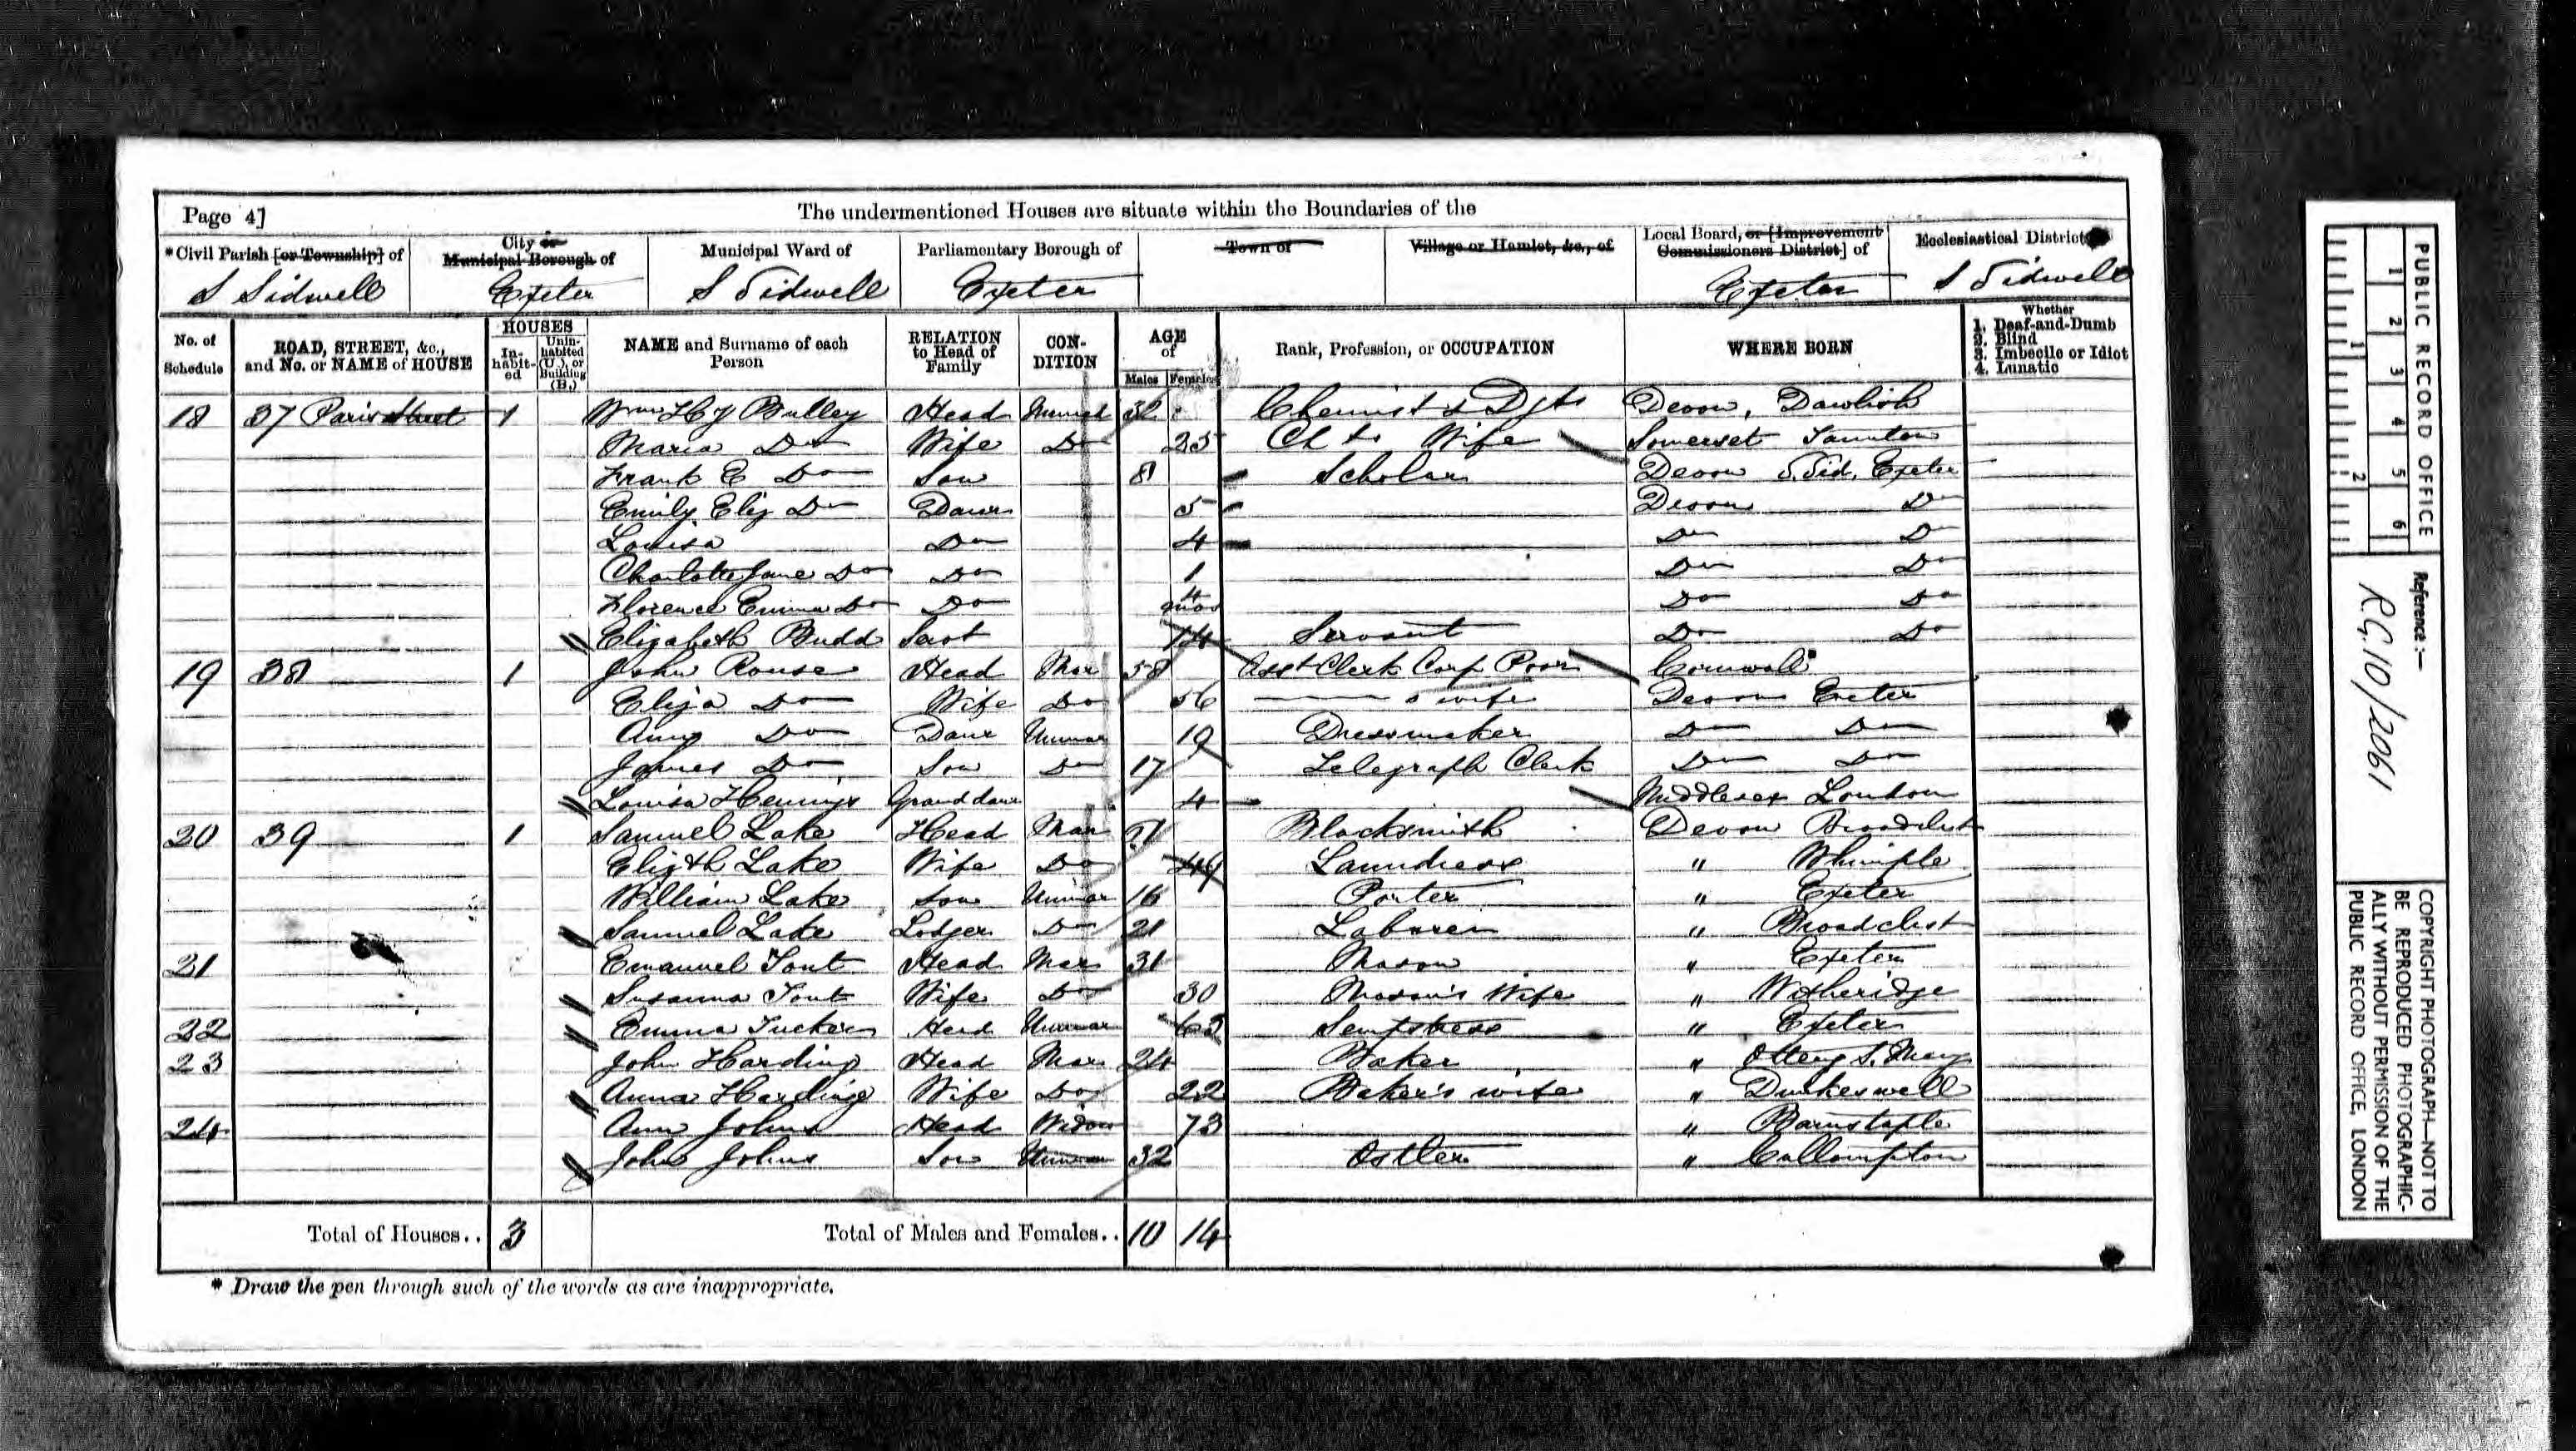 Page 4]
The undermentioned Houses are situate within the Boundaries of the
*Civil Parish [or Township] of
City or Municipal Borough of
Municipal Ward of
Parliamentary Borough of
Town of
Village or Hamlet, &c., of
Local Board, or [Improvement Commissioners District] of
Ecclesiastical District
S Sidwell Exeter S Sidwell Exeter Exeter S Sidwell
No. of Schedule
ROAD, STREET, &c., and No. or NAME of HOUSE
HOUSES
In-habit-ed
Unin-habited (U.), or Building (B.)
NAME and Surname of each Person
RELATION to Head of Family
CON-DITION
AGE of
Males Females
Rank, Profession, or OCCUPATION
WHERE BORN
Whether
1. Deaf-and-Dumb
2. Blind
3. Imbecile or Idiot
4. Lunatic
18 37 Paris Street 1 Wm Hy Bulley Head 32 Chemist & Devon, Dawlish
Maria Do Wife Do Wife Somerset Taunton
Frank E Do Son 8 Scholar Devon S. Sid. Exeter
Emily Eliz Do Daur 5 Devon Do
Louisa Do 4 Do Do
Charlotte Jane Do Do 1 Do Do
Florence Emma Do Do 4 mos Do Do
Elizabeth Budd Servt 14 Servant Do Do
19 38 1 John Rouse Head Mar 58 Asst Clerk Corp. Poor Cornwall
Eliza Do Wife Do 56 s wife Devon Exeter
Anny Do Daur Unmar 19 Dressmaker Do Do
James Do Son Do 17 Telegraph Clerk Do Do
Louisa Grand daur 4 Middlesex London
20 39 1 Samuel Lake Head Mar 51 Blacksmith Devon Broadclist
Elizth Lake Wife Do 49 Laundress " Whimple
William Lake Son Unmar 16 Porter " Exeter
Samuel Lake Lodger Do 21 Laborer " Broadclist
21 Emanuel Tout Head Mar 31 Mason " Exeter
Susanna Tout Wife Do 30 Mason's Wife " Witheridge
22 Emma Tucker Head Unmar Sempstress " Exeter
23 John Harding Head Mar 24 Baker " Ottery S. Mary
Anna Harding Wife Do 22 Baker's wife " Dunkeswell
24 Ann Johns Head Widow 73 " Barnstaple
John Johns Son Unmar 32 Ostler " Collumpton
Total of Houses.. 3 Total of Males and Females.. 10 14
* Draw the pen through such of the words as are inappropriate.
PUBLIC RECORD OFFICE
1 2 3 4 5 6
1 2
Reference :—
R.G. 10/2061
COPYRIGHT PHOTOGRAPH—NOT TO
BE REPRODUCED PHOTOGRAPHIC-
ALLY WITHOUT PERMISSION OF THE
PUBLIC RECORD OFFICE, LONDON